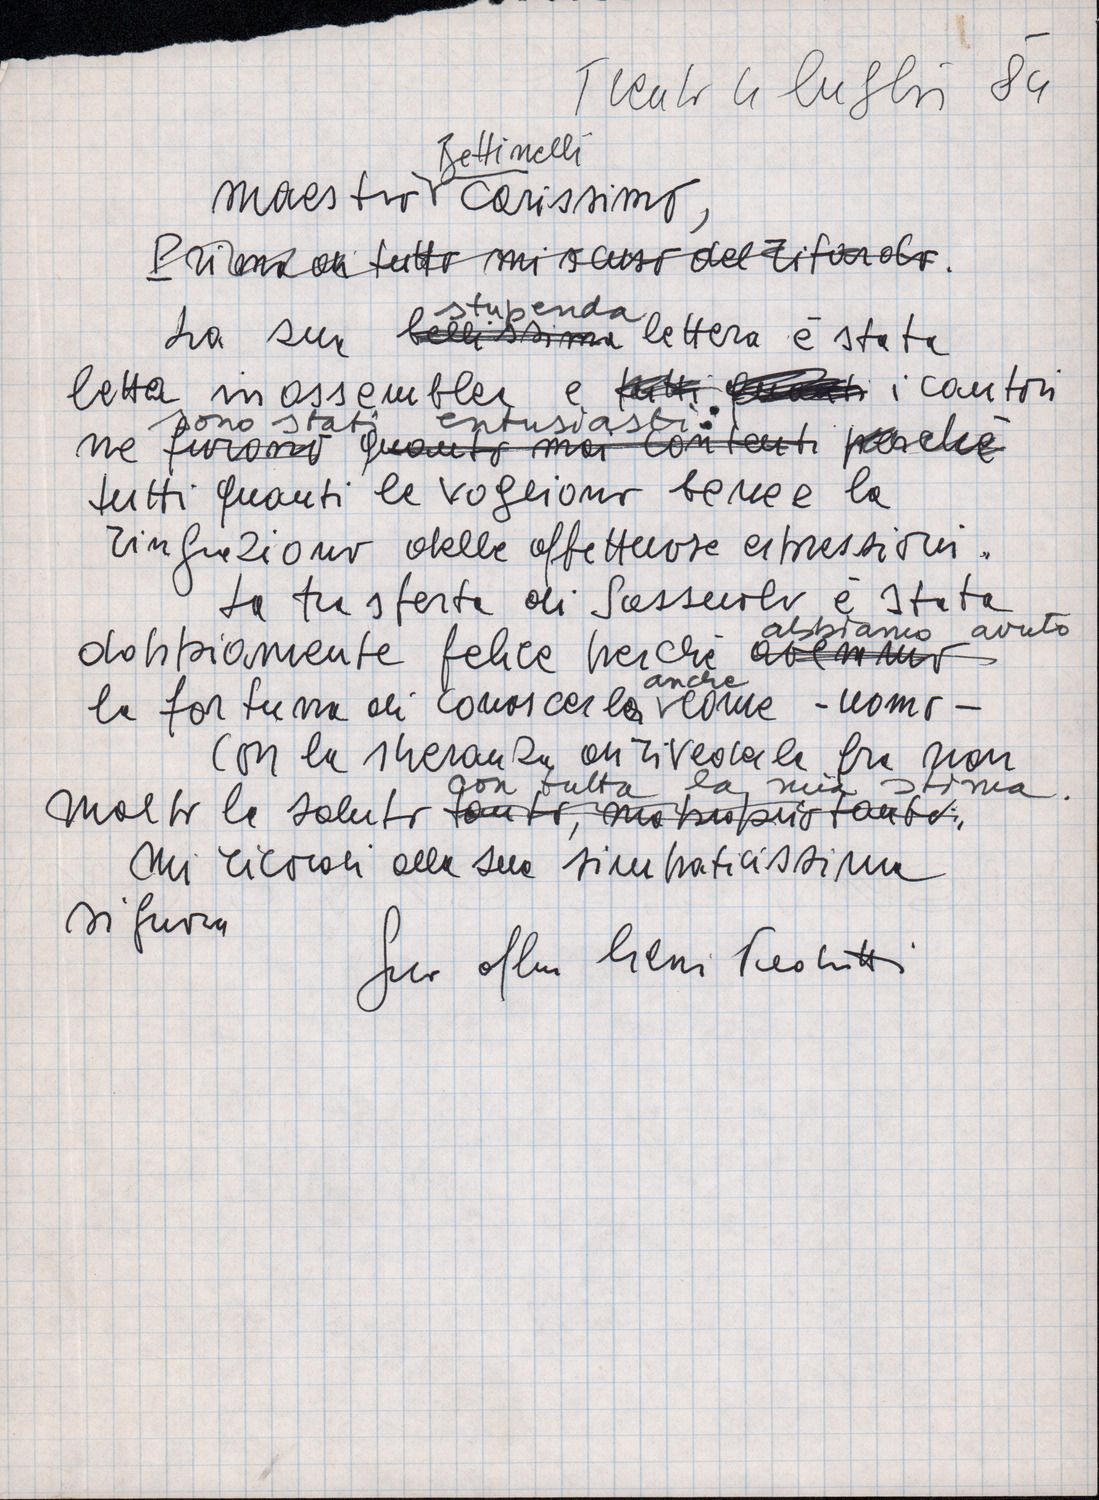 Trento 4 luglio 84
Bettinelli
Maestro Carissimo,
Prima di tutto mi scuso del ritardo.
stupenda
La sua bellissima lettera è stata
letta in assemblea e tutti quanti i cantori
sono stati entusiasti:
ne furono quanto mai contenti perché
tutti quanti le vogliono bene e la
ringraziono delle affettuose espressioni.
La trasferta di Sassuolo è stata
abbiamo avuto
doppiamente felice perché avemmo
anche
la fortuna di conoscerla come - uomo -
Con la speranza di rivederla fra non
con tutta la mia stima.
molto la saluto tanto, ma proprio tanto.
Mi ricordi alla sua simpaticissima
signora
Suo